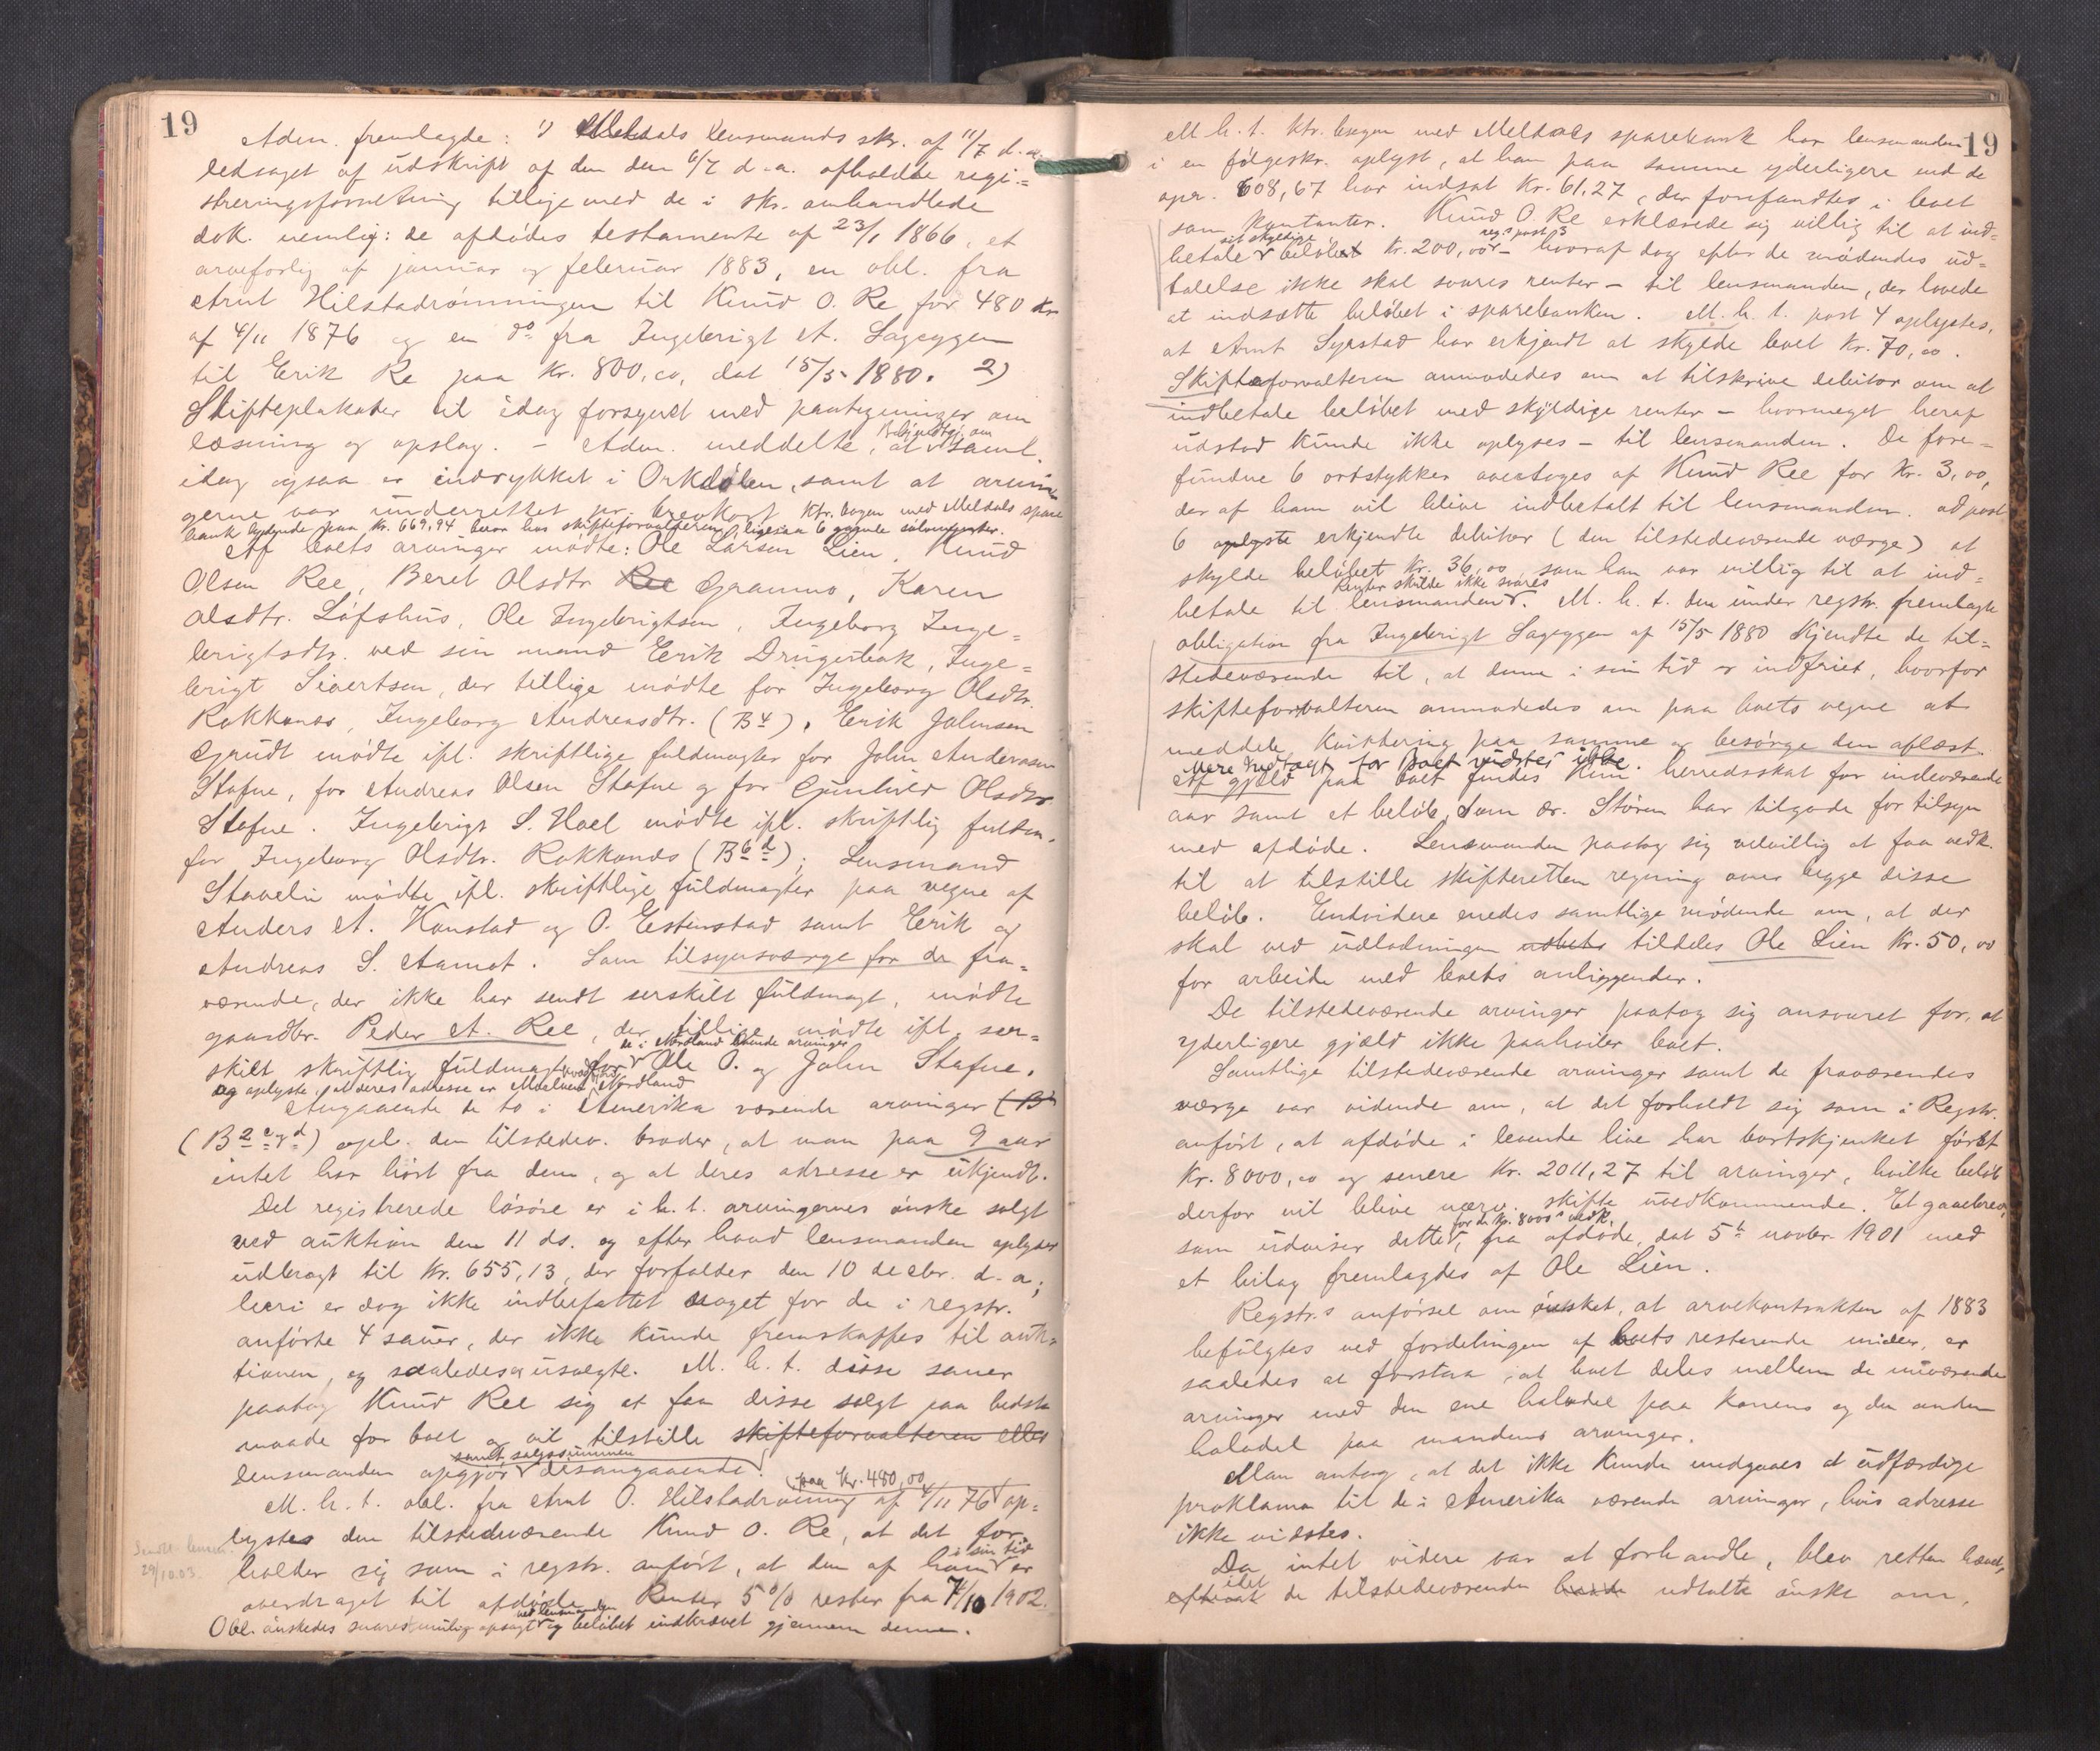 19
Adm. fremlagde: 1) Meldals lensmands skr. af 11/7 d.a.
ledsaget af udskrift af den den 6/7 d.a. afholdte regi=
streringsforretning tillige med de i skr. omhandlede
dok. nemlig: de afdødes testamente af 23/1 1866, et
arveforlig af januar og februar 1883, en obl. fra
Arnt Hilstadrønningen til Knud O. Re for 480 kr.
af 4/11 1876 og en do fra Ingebrigt A. Sageggen
til Erik Re paa kr. 800,00, dat 15/5 1880. 2)
Skifteplakater til idag forsynet med paategninger om
læsning og opslag. - Adm. meddelte, at bekjendtgj. om saml.
idag ogsaa er indrykket i Orkdølen, samt at arvin
gerne var underrettet pr. brevkort. Ktr. bogen med Meldals spare
bank lydende paa kr. 669,94 beror hos skifteforvalteren, ligesaa 6 gamle sølvmynter.
Af boets arvinger mødte: Ole Larsen Lien, Knud
Olsen Ree, Beret Olsdtr Ree Gramno, Karen
Olsdtr. Løfshus, Ole Ingebrigtsen, Ingeborg Inge=
brigtsdtr. ved sin mand Erik Drugubak, Inge=
brigt Sivertsen, der tillige mødte for Ingeborg Olsdtr.
Rokkones, Ingeborg Andreasdtr. (B 4). Erik Johnsen
Grudt mødte ifl. skriftlige fuldmagter for John Andersen
Stafne, for Andreas Olsen Stafne og for Gunhild Olsdtr
Stafne. Ingebrigt S. Hoel mødte ifl. skriftlig fuldm.
for Ingeborg Olsdtr. Rokkones (B 6 d); Lensmand
Stavelin mødte ifl. skriftlige fuldmagter paa vegne af
Anders A. Konstad og O. Estenstad samt Erik og
Andreas S. Aamot. Som tilsynsværge for de fra=
værende, der ikke har sendt serskilt fuldmagt, mødte
gaardbr. Peder A. Ree, der tillige mødte ifl. ser=
skilt skriftlig fuldmagt for de i Nordland boende arvinger Ole O. og John Stafne,
og oplyste, at deres adresse er Maalnes Nordland
Angaaende de to i Amerika værende arvinger (B
(B 2 c og d) opl. den tilstedev. broder, at man paa 9 aar
intet har hørt fra dem, og at deres adresse er ukjendt.
Det registrerede løsøre er i h. t. arvingernes ønske solgt
ved auktion den 11 ds. og efter hvad lensmanden oplyser
udbragt til kr. 655,13, der forfalder den 10 decbr. d.a;
heri er dog ikke indbefattet noget for de i regstr.
anførte 4 sauer, der ikke kunde fremskaffes til auk=
tionen, og saaledes er usolgte. M. h. t. disse sauer
paatog Knud Ree sig at faa disse solgt paa bedste
maade for boet og vil tilstille skifteforvalteren eller
lensmanden opgjør samt salgssummen desangaaende.
M. h. t. obl. fra Arnt O. Hilstadrønning af 4/11 76 paa kr. 480,00 op=
lystes den tilstedeværende Knud O. Re, at det for=
holder sig som i regstr. anført, at den af ham i sin tid er
overdraget til afdøde. Renter 5 % rester fra 7/10 1902.
Obl. ønskedes snarest mulig opsagt ved lensmanden og beløbet indkrævet gjennem denne.
Sendt lensm.
29/10.03.
19
M. h. t. ktr. bogen med Meldals sparebank har lensmanden
i en følgeskr. oplyst, at han paa samme yderligere end de
opr. 608,67 har indsat kr. 61,27, der forefandtes i boet
som kontanter. Knud O. Re erklærede sig villig til at ind=
betale sit skyldige beløbet kr. 200,00 reg.s post 3 - hvoraf dog efter de mødendes ud=
talelse ikke skal svares renter - til lensmanden, der lovede
at indsætte beløbet i sparebanken. M. h. t. post 4 oplystes,
at Arnt Syrstad har erkjendt at skylde boet kr. 70,00.
Skifteforvalteren anmodedes om at tilskrive debitor om at
indbetale beløbet med skyldige renter - hvormeget heraf
udstod kunde ikke oplyses - til lensmanden. De fore=
fundne 6 ortstykker overtoges af Knud Ree for kr. 3,00,
der af ham vil blive indbetalt til lensmanden. ad post
6 oplyste erkjendte debitor (den tilstedeværende værge) at
skylde beløbet kr. 36,00 som han var villig til at ind=
betale til lensmanden. Renter skulde ikke svares M. h. t. den under regstr. fremlagte
obligation fra Ingebrigt Sageggen af 15/5 1880 kjendte de til=
stedeværende til, at denne i sin tid er indfriet, hvorfor
skifteforvalteren anmodedes om paa boets vegne at
meddele kvittering paa samme og besørge den aflæst.
Mere indtægt for boet vidstes ikke.
Af gjæld paa boet findes kun herredsskat for indeværende
aar samt et beløb, som dr. Støren har tilgode for tilsyn
med afdøde. Lensmanden paatog sig velvillig at faa vedk.
til at tilstille skifteretten regning over begge disse
beløb. Endvidere enedes samtlige mødende om, at der
skal ved udlodningen tildeles Ole Lien kr. 50,00
for arbeide med boets anliggender.
De tilstedeværende arvinger paatog sig ansvaret for, at
yderligere gjæld ikke paahviler boet.
Samtlige tilstedeværende arvinger samt de fraværendes
værge var vidende om, at det forholdt sig som i Regstr.
anført, at afdøde i levende live har bortskjenket først
kr. 8000,00 og senere kr. 2011,27 til arvinger, hvilke beløb
derfor vil blive nærv. skifte uvedkommende. Et gavebrev,
som udviser dette for de kr. 8000s vedk., fra afdøde, dat 5te novbr. 1901 med
et bilag fremlagdes af Ole Lien.
Regstr.s anførsel om ønsket, at arvekontrakten af 1883
befølgtes ved fordelingen af boets resterende midler, er
saaledes at forstaa, at boet deles mellem de nuværende
arvinger med den ene halvdel paa konens og den anden
halvdel paa mandens arvinger.
Man antog, at det ikke kunde undgaaes at udfærdige
proklama til de i Amerika værende arvinger, hvis adresse
ikke vidstes.
Da intet videre var at forhandle, blev retten hævet,
efterat idet de tilstedeværende havde udtalte ønske om,